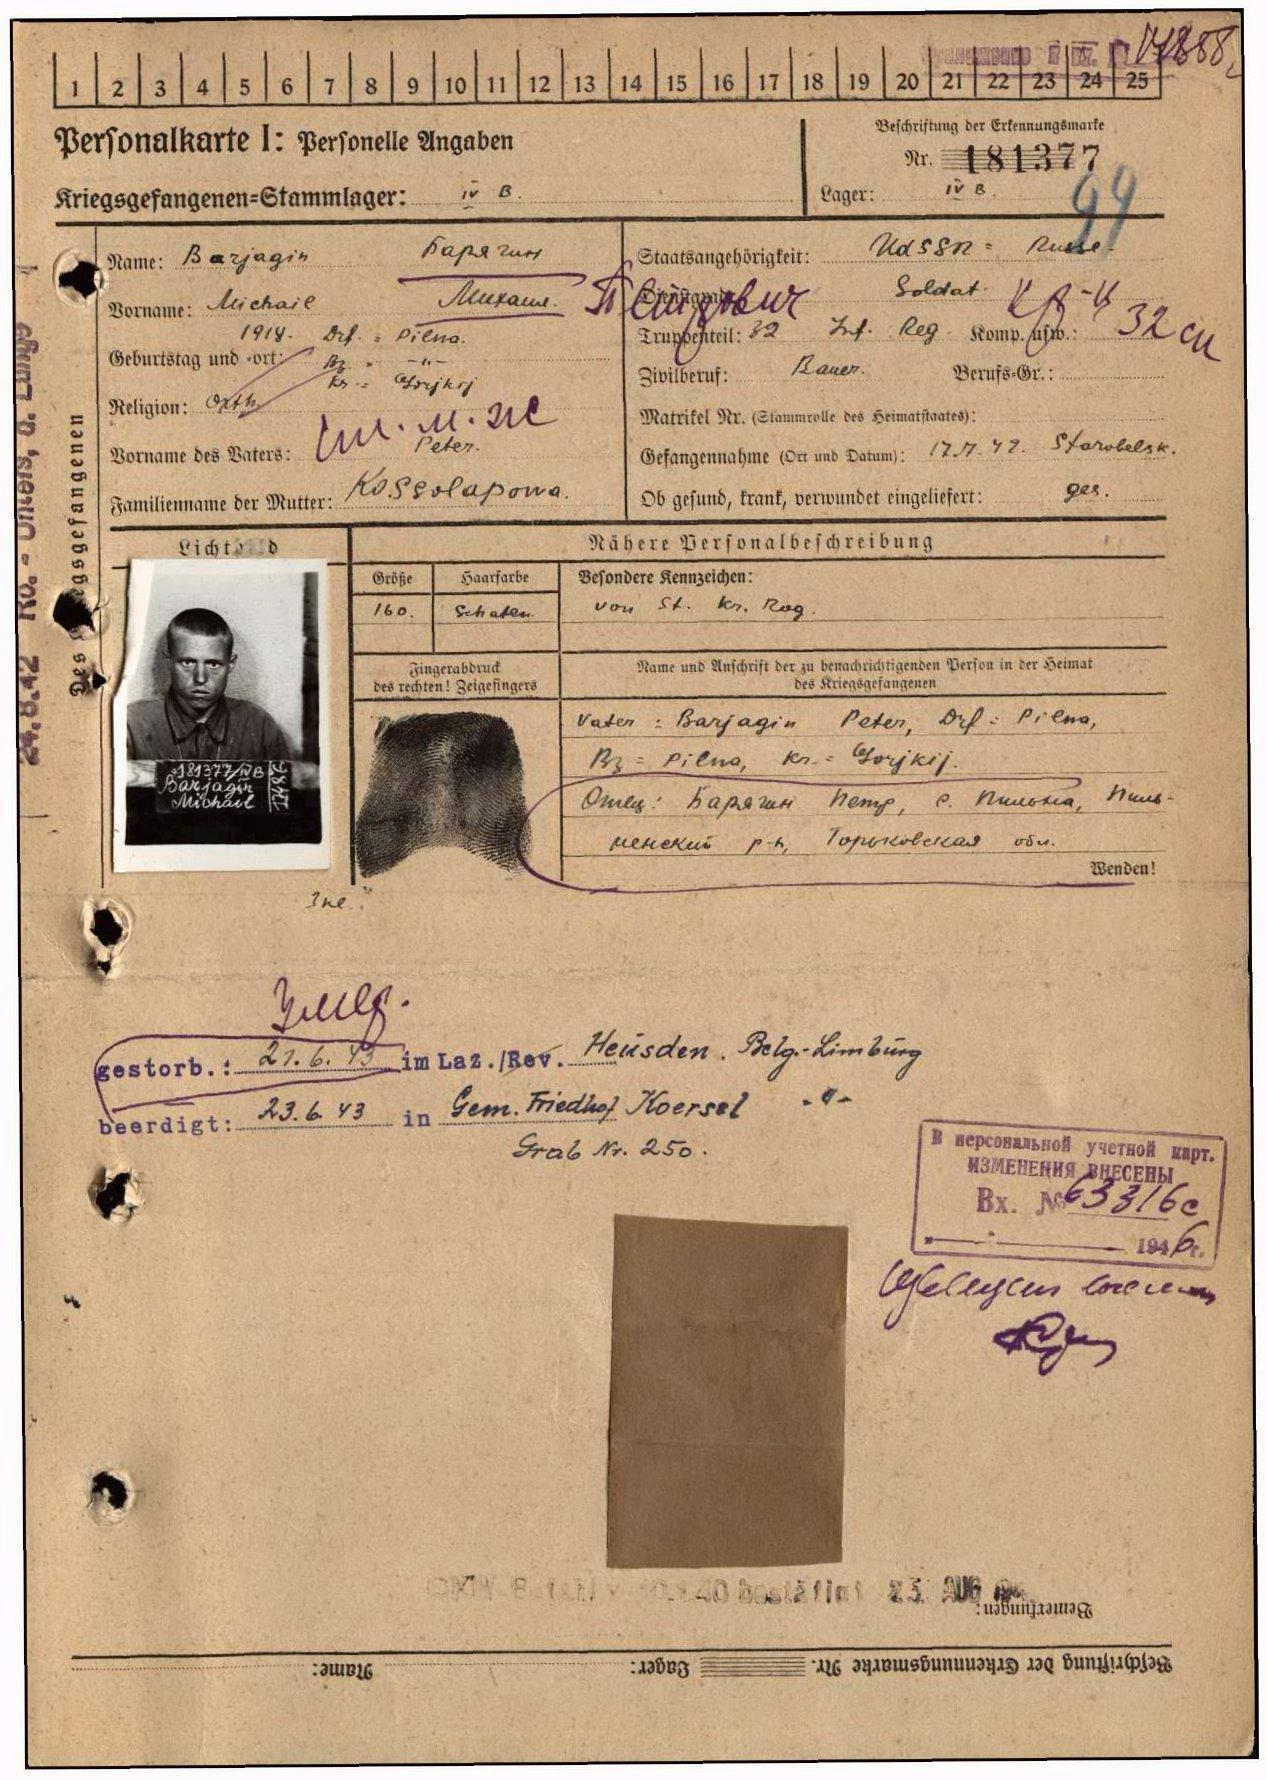 1 2 3 4 5 6 7 8 9 10 11 12 13 14 15 16 17 18 19 20 21 22 23 24 25
Personalkarte I: Personelle Angaben
Beschriftung der Erkennungsmarke
Nr. 181377
Kriegsgefangenen=Stammlager: IV B.
Lager: IV B.
Name: Barjagin Барягин
Vorname: Michail Михаил. Петрович
1914. Drf. = Pilna.
Geburtstag und -ort: Bz = -"-
Kr. = Gorjkij
Religion: Orth
Vorname des Vaters: Peter.
Familienname der Mutter: Kossolapowa.
Staatsangehörigkeit: UdSSR = Russe.
Dienstgrad: Soldat. кр-ц
Truppenteil: 32 Inf. Reg Komp. usw.: 32 сп
Zivilberuf: Bauer. Berufs-Gr.:
Matrikel Nr. (Stammrolle des Heimatstaates):
Gefangennahme (Ort und Datum): 17.7.42. Starobelsk.
Ob gesund, krank, verwundet eingeliefert: ges.
Des Kriegsgefangenen
24.8.42 Ro.- Unters. d. Lunge
Lichtbild
181377/IV B
Barjagin
Michail
Nähere Personalbeschreibung
Größe Haarfarbe Besondere Kennzeichen:
160. Schaten. von St. Kr. Rog.
Fingerabdruck
des rechten! Zeigefingers
Name und Anschrift der zu benachrichtigenden Person in der Heimat
des Kriegsgefangenen
Vater: Barjagin Peter, Drf = Pilna,
Bz = Pilna, Kr. = Gorjkij.
Отец: Барягин Петр, с. Пильна, Пиль-
ненский р-н, Горьковская обл.
Wenden!
Умер.
gestorb.: 21.6.43 im Laz./Rev. Heusden. Belg.-Limburg
beerdigt: 23.6.43 in Gem. Friedhof Koersel -"-
Grab Nr. 250.
В персональной учетной карт.
ИЗМЕНЕНИЯ ВНЕСЕНЫ
Вх. № 63316с
1946г.
23 AUG
Bemerkungen:
Beschriftung der Erkennungsmarke Nr. Lager: Name: